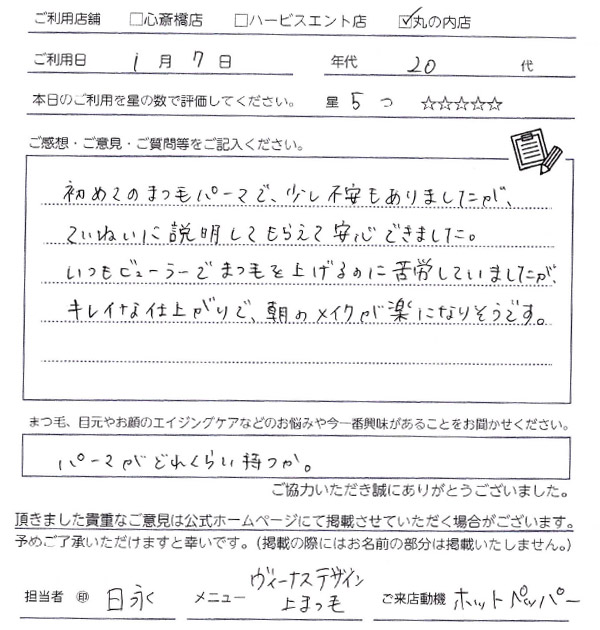 ご利用店舗 □心斎橋店 □ハービスエント店 ☑丸の内店
ご利用日 1月7日 年代 20代
本日のご利用を星の数で評価してください。 星 5つ ☆☆☆☆☆
ご感想・ご意見・ご質問等をご記入ください。
初めてのまつ毛パーマで、少し不安もありましたが、
ていねいに説明してもらえて安心できました。
いつもビューラーでまつ毛を上げるのに苦労していましたが、
キレイな仕上がりで、朝のメイクが楽になりそうです。
まつ毛、目元やお顔のエイジングケアなどのお悩みや今一番興味があることをお聞かせください。
パーマがどれくらい持つか。
ご協力いただき誠にありがとうございました。
頂きました貴重なご意見は公式ホームページにて掲載させていただく場合がございます。
予めご了承いただけますと幸いです。(掲載の際にはお名前の部分は掲載いたしません。)
担当者 ㊞ 日永 メニュー ヴィーナスデザイン 上まつ毛 ご来店動機 ホットペッパー